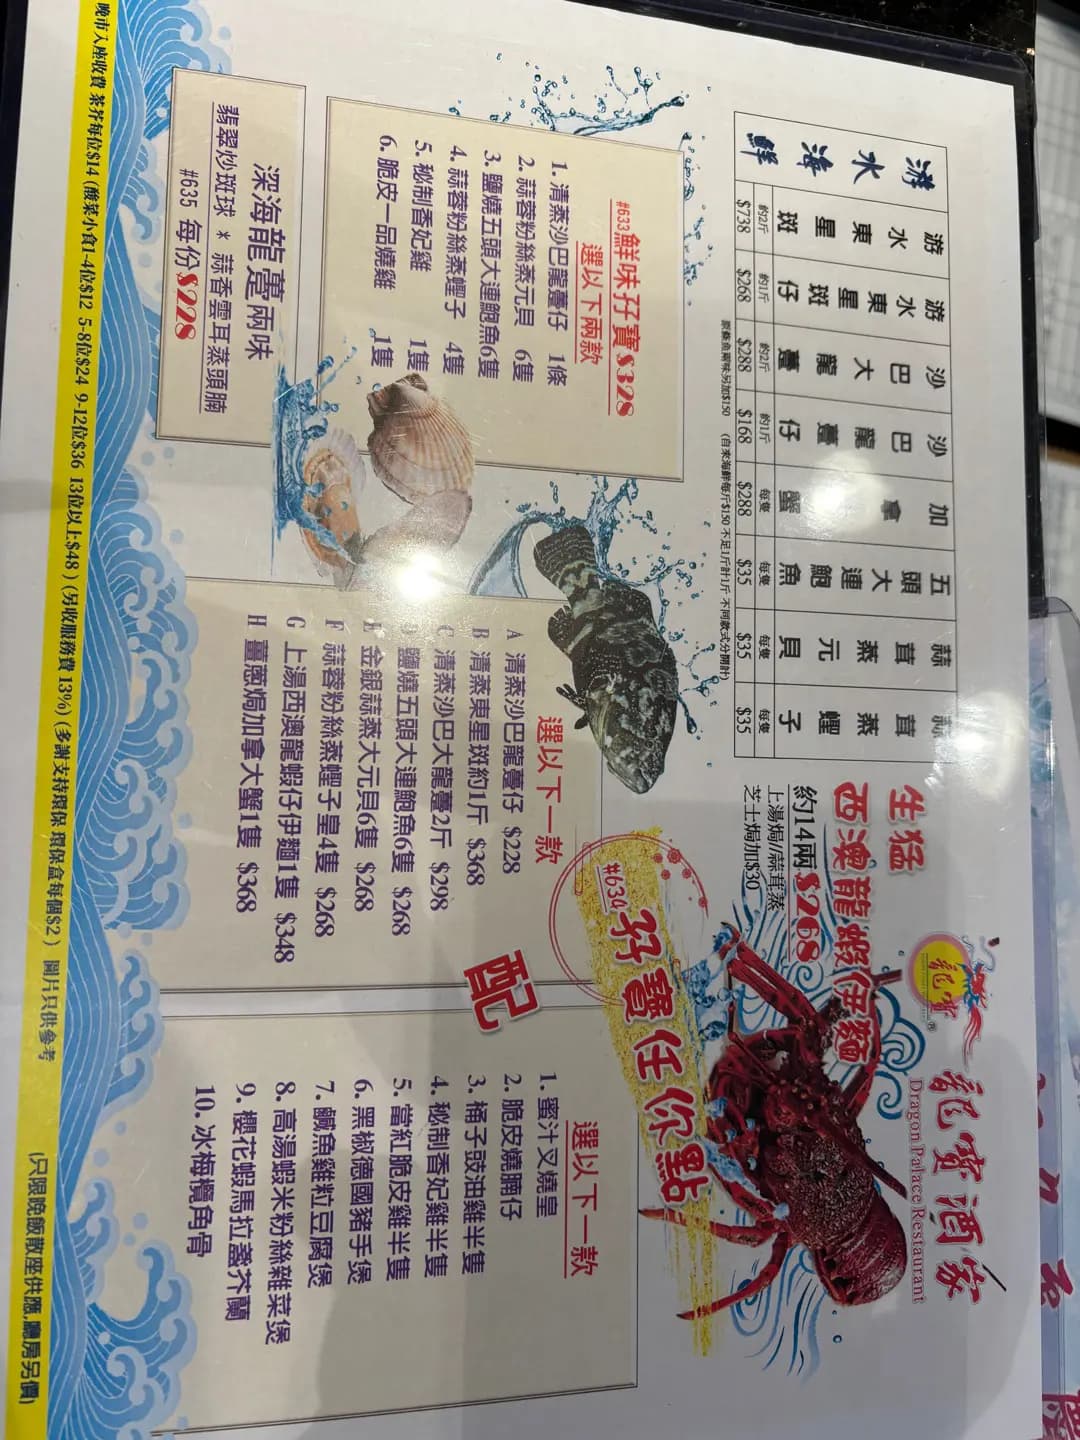 龍寶
®
龍寶酒家
Dragon Palace Restaurant
游水海鮮
游水東星斑 約2斤 $738
游水東星斑仔 約1斤 $268
沙巴大龍躉 約2斤 $288
沙巴龍躉仔 約1斤 $168
加拿蟹 每隻 $288
五頭大連鮑魚 每隻 $35
蒜茸蒸元貝 每隻 $35
蒜茸蒸蟶子 每隻 $35
原條魚兩味另加$150 (自來海鮮每斤$150 不足1斤計1斤 不同款式分開計)
生猛
西澳龍蝦伊麵
約14兩$268
上湯焗/蒜茸蒸
芝士焗加$30
#633鮮味孖寶$328
選以下兩款
1. 清蒸沙巴龍躉仔 1條
2. 蒜蓉粉絲蒸元貝 6隻
3. 鹽燒五頭大連鮑魚6隻
4. 蒜蓉粉絲蒸蟶子 4隻
5. 秘制香妃雞 1隻
6. 脆皮一品燒雞 1隻
深海龍躉兩味
翡翠炒斑球 * 蒜香雲耳蒸頭腩
#635 每份$228
#634 孖寶任你點
選以下一款
A 清蒸沙巴龍躉仔 $228
B 清蒸東星斑約1斤 $368
C 清蒸沙巴大龍躉2斤 $298
D 鹽燒五頭大連鮑魚6隻 $268
E 金銀蒜蒸大元貝6隻 $268
F 蒜蓉粉絲蒸蟶子皇4隻 $268
G 上湯西澳龍蝦仔伊麵1隻 $348
H 薑蔥焗加拿大蟹1隻 $368
配
選以下一款
1. 蜜汁叉燒皇
2. 脆皮燒腩仔
3. 桶子豉油雞半隻
4. 秘制香妃雞半隻
5. 當紅脆皮雞半隻
6. 黑椒德國豬手煲
7. 鹹魚雞粒豆腐煲
8. 高湯蝦米粉絲雜菜煲
9. 櫻花蝦馬拉盞芥蘭
10. 冰梅欖角骨
晚市入座收費 茶芥每位$14 (酸菜小食1-4位$12 5-8位$24 9-12位$36 13位以上$48) (另收服務費 13%) (多謝支持環保 環保盒每個$2) 圖片只供參考
(只限晚飯散座供應,廳房另價)